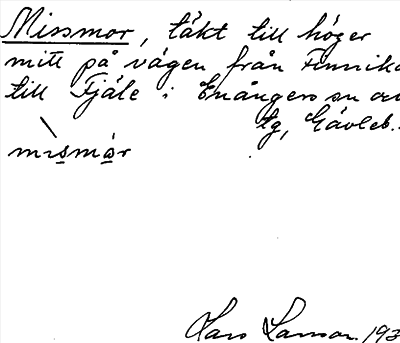 Missmor, täkt till höger
mitt på vägen från Finnika
till Fjäle i Enångers sn och
tg, Gävleb.
mismår
Lars Larsson 193